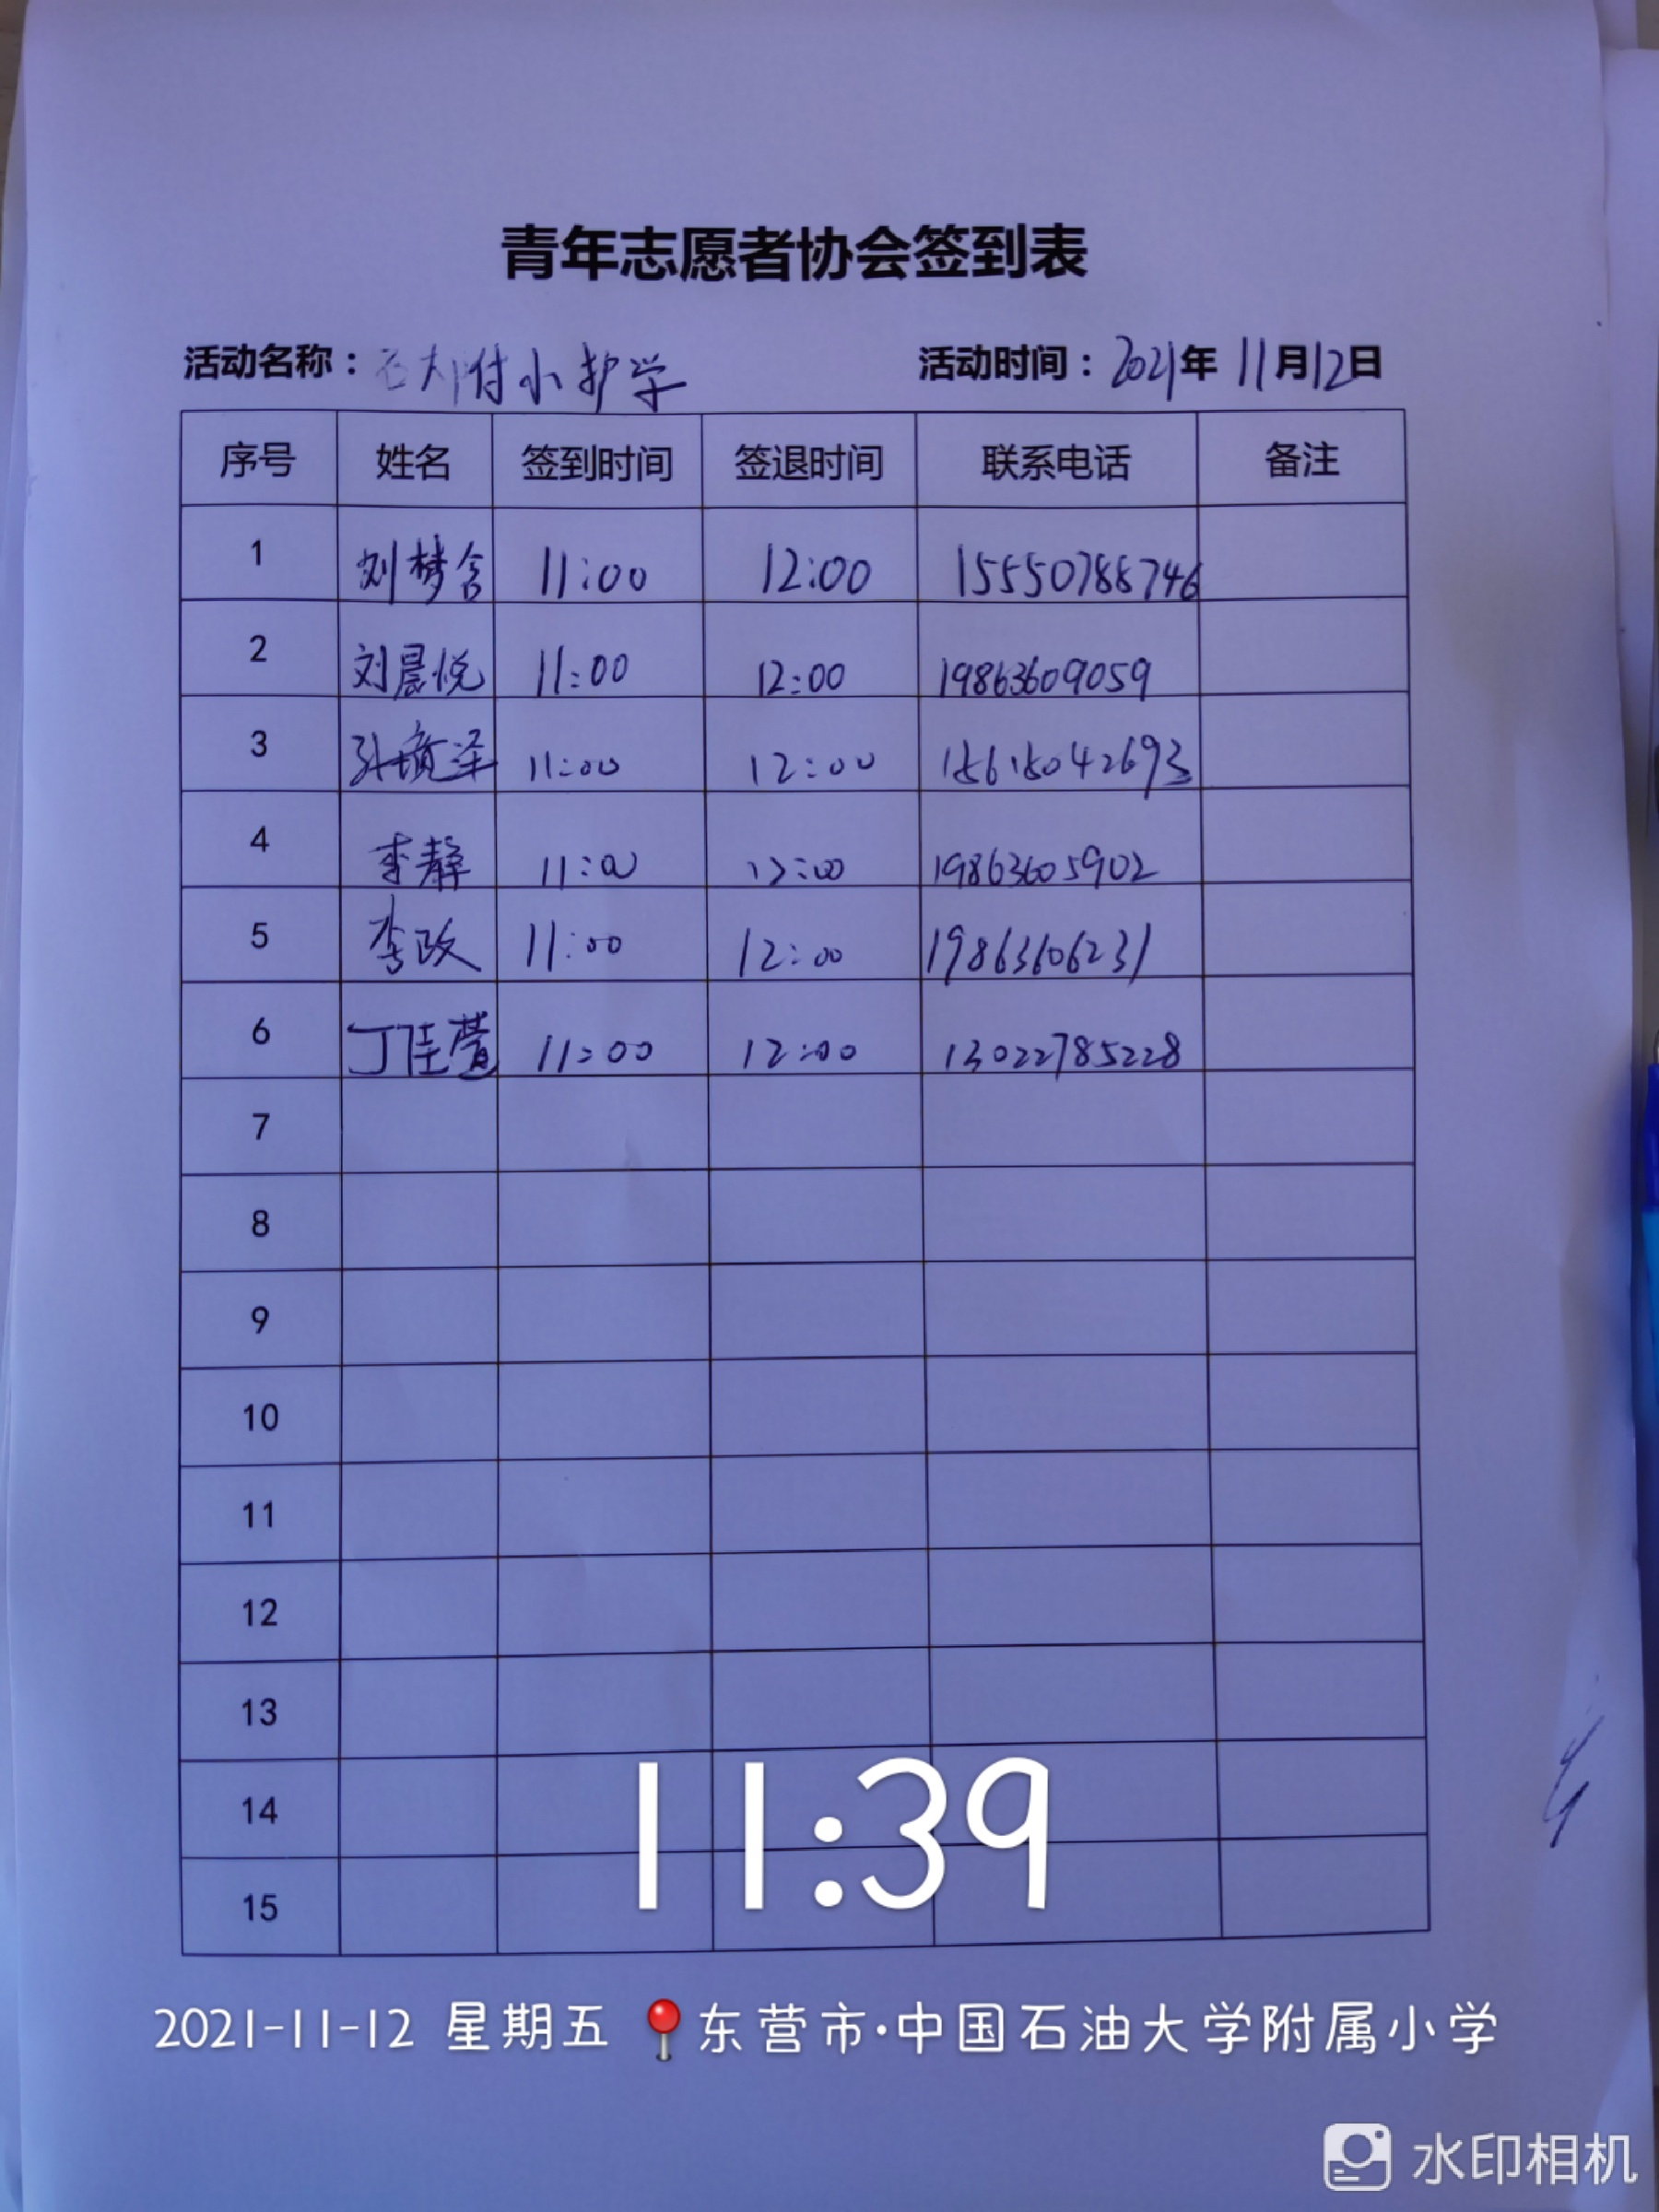 青年志愿者协会签到表
活动名称：石大附小护学 活动时间：2021年11月12日
序号 姓名 签到时间 签退时间 联系电话 备注
1 刘梦含 11:00 12:00 15550788746
2 刘晨悦 11:00 12:00 19863609059
3 11:00 12:00 18618042693
4 李静 11:00 12:00 19863605902
5 李政 11:00 12:00 19863606231
6 丁佳萱 11:00 12:00 13022785228
7
8
9
10
11
12
13
14
15
11:39
2021-11-12 星期五 东营市·中国石油大学附属小学
水印相机